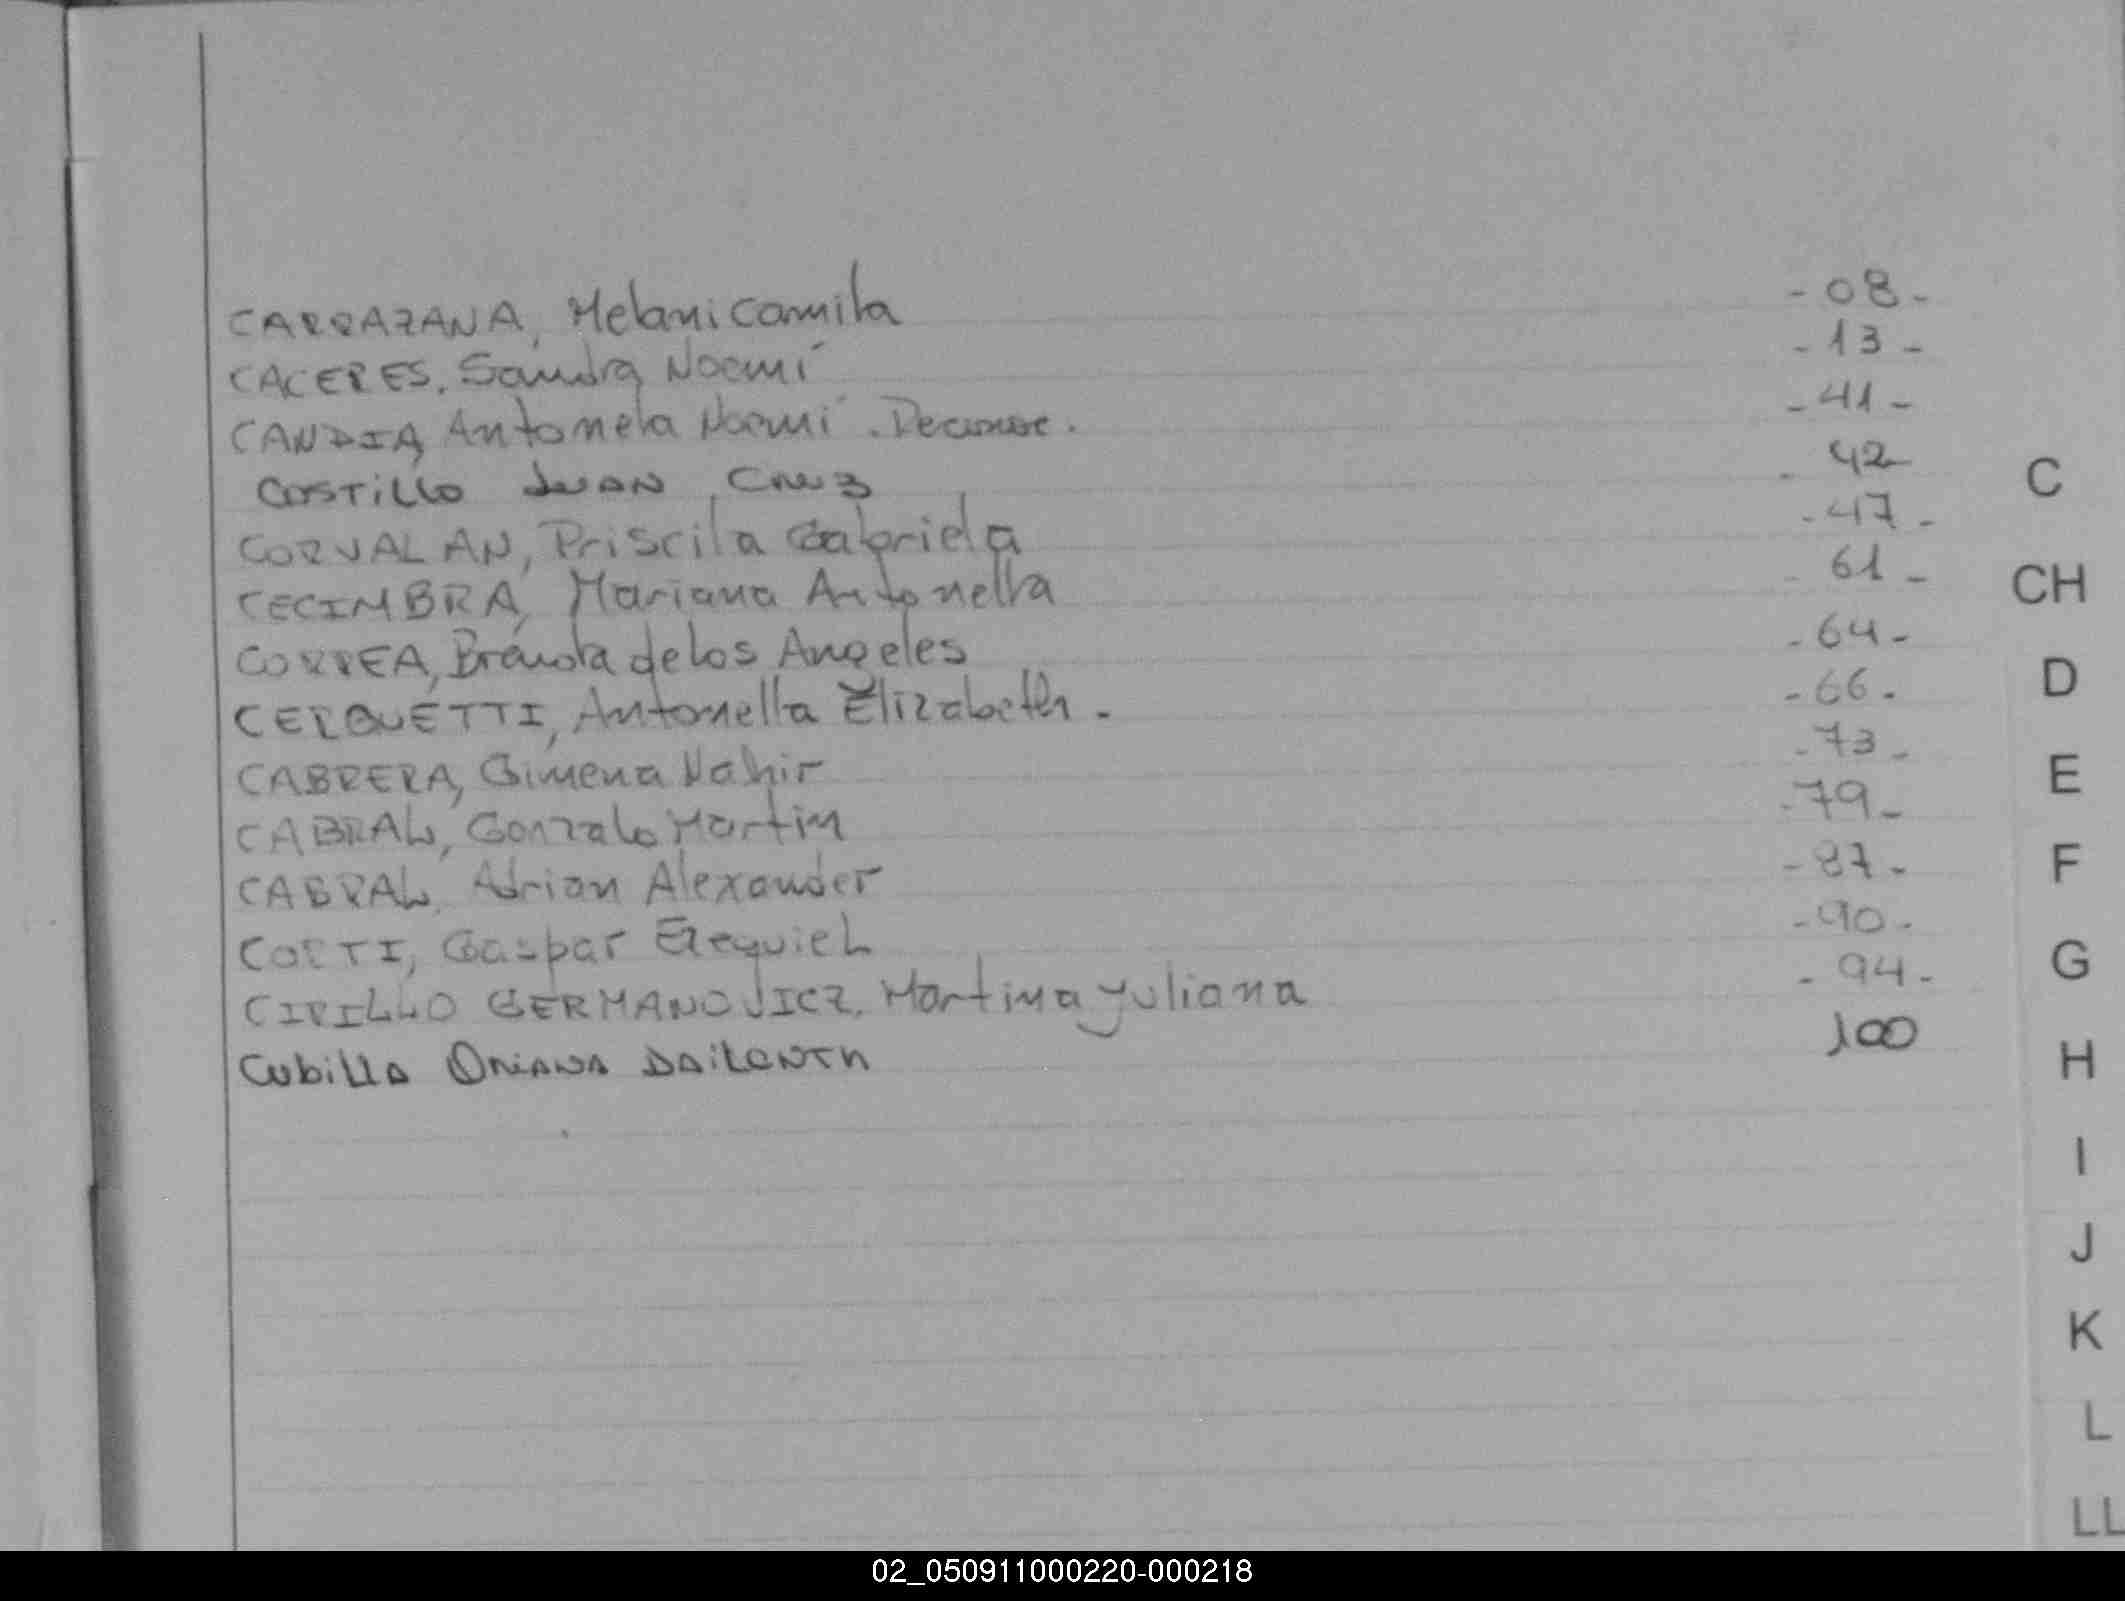 CARRAZANA, Melani Camila -08-
CACERES, Sandra Noemí -13-
CANDIA, Antonela Noemí. -41-
COSTILLO Juan Cruz - 42
CORVALAN, Priscila Gabriela -47-
CECIMBRA, Mariana Antonella - 61 -
CORREA, Brenda de los Angeles -64-
CERQUETTI, Antonella Elizabeth. -66-
CABRERA, Gimena Nahir -73-
CABRAL, Gonzalo Martin -79-
CABRAL, Adrian Alexander -87-
CORTI, Gaspar Ezequiel -90-
CIRILLO GERMANOVICZ, Martina Yuliana - 94-
Cubilla Oriana 100
C
CH
D
E
F
G
H
I
J
K
L
LL
02_050911000220-000218